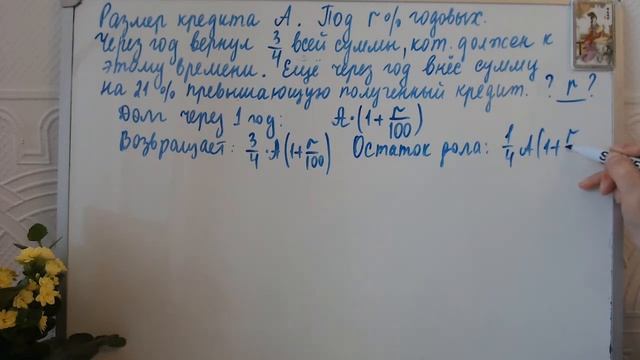 Размер кредита А. Под r % годовых.
Через год вернул 3/4 всей суммы, кот. должен к
этому времени. Ещё через год внёс сумму
на 21 % превышающую полученный кредит. ? r ?
Долг через 1 год: А·(1+r/100)
Возвращает: 3/4·А(1+r/100) Остаток рола: 1/4 А(1+r